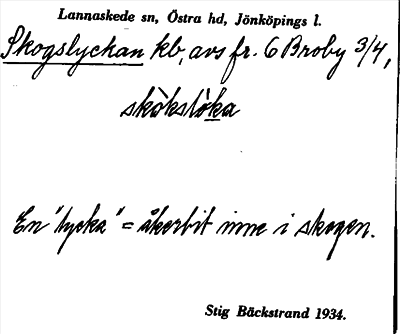 Lannaskede sn, Östra hd, Jönköpings l.
Skogslyckan kb, avs fr. 6 Broby 3/4,
skòkslỏka
En "lycka" = åkerbit inne i skogen.
Stig Bäckstrand 1934.